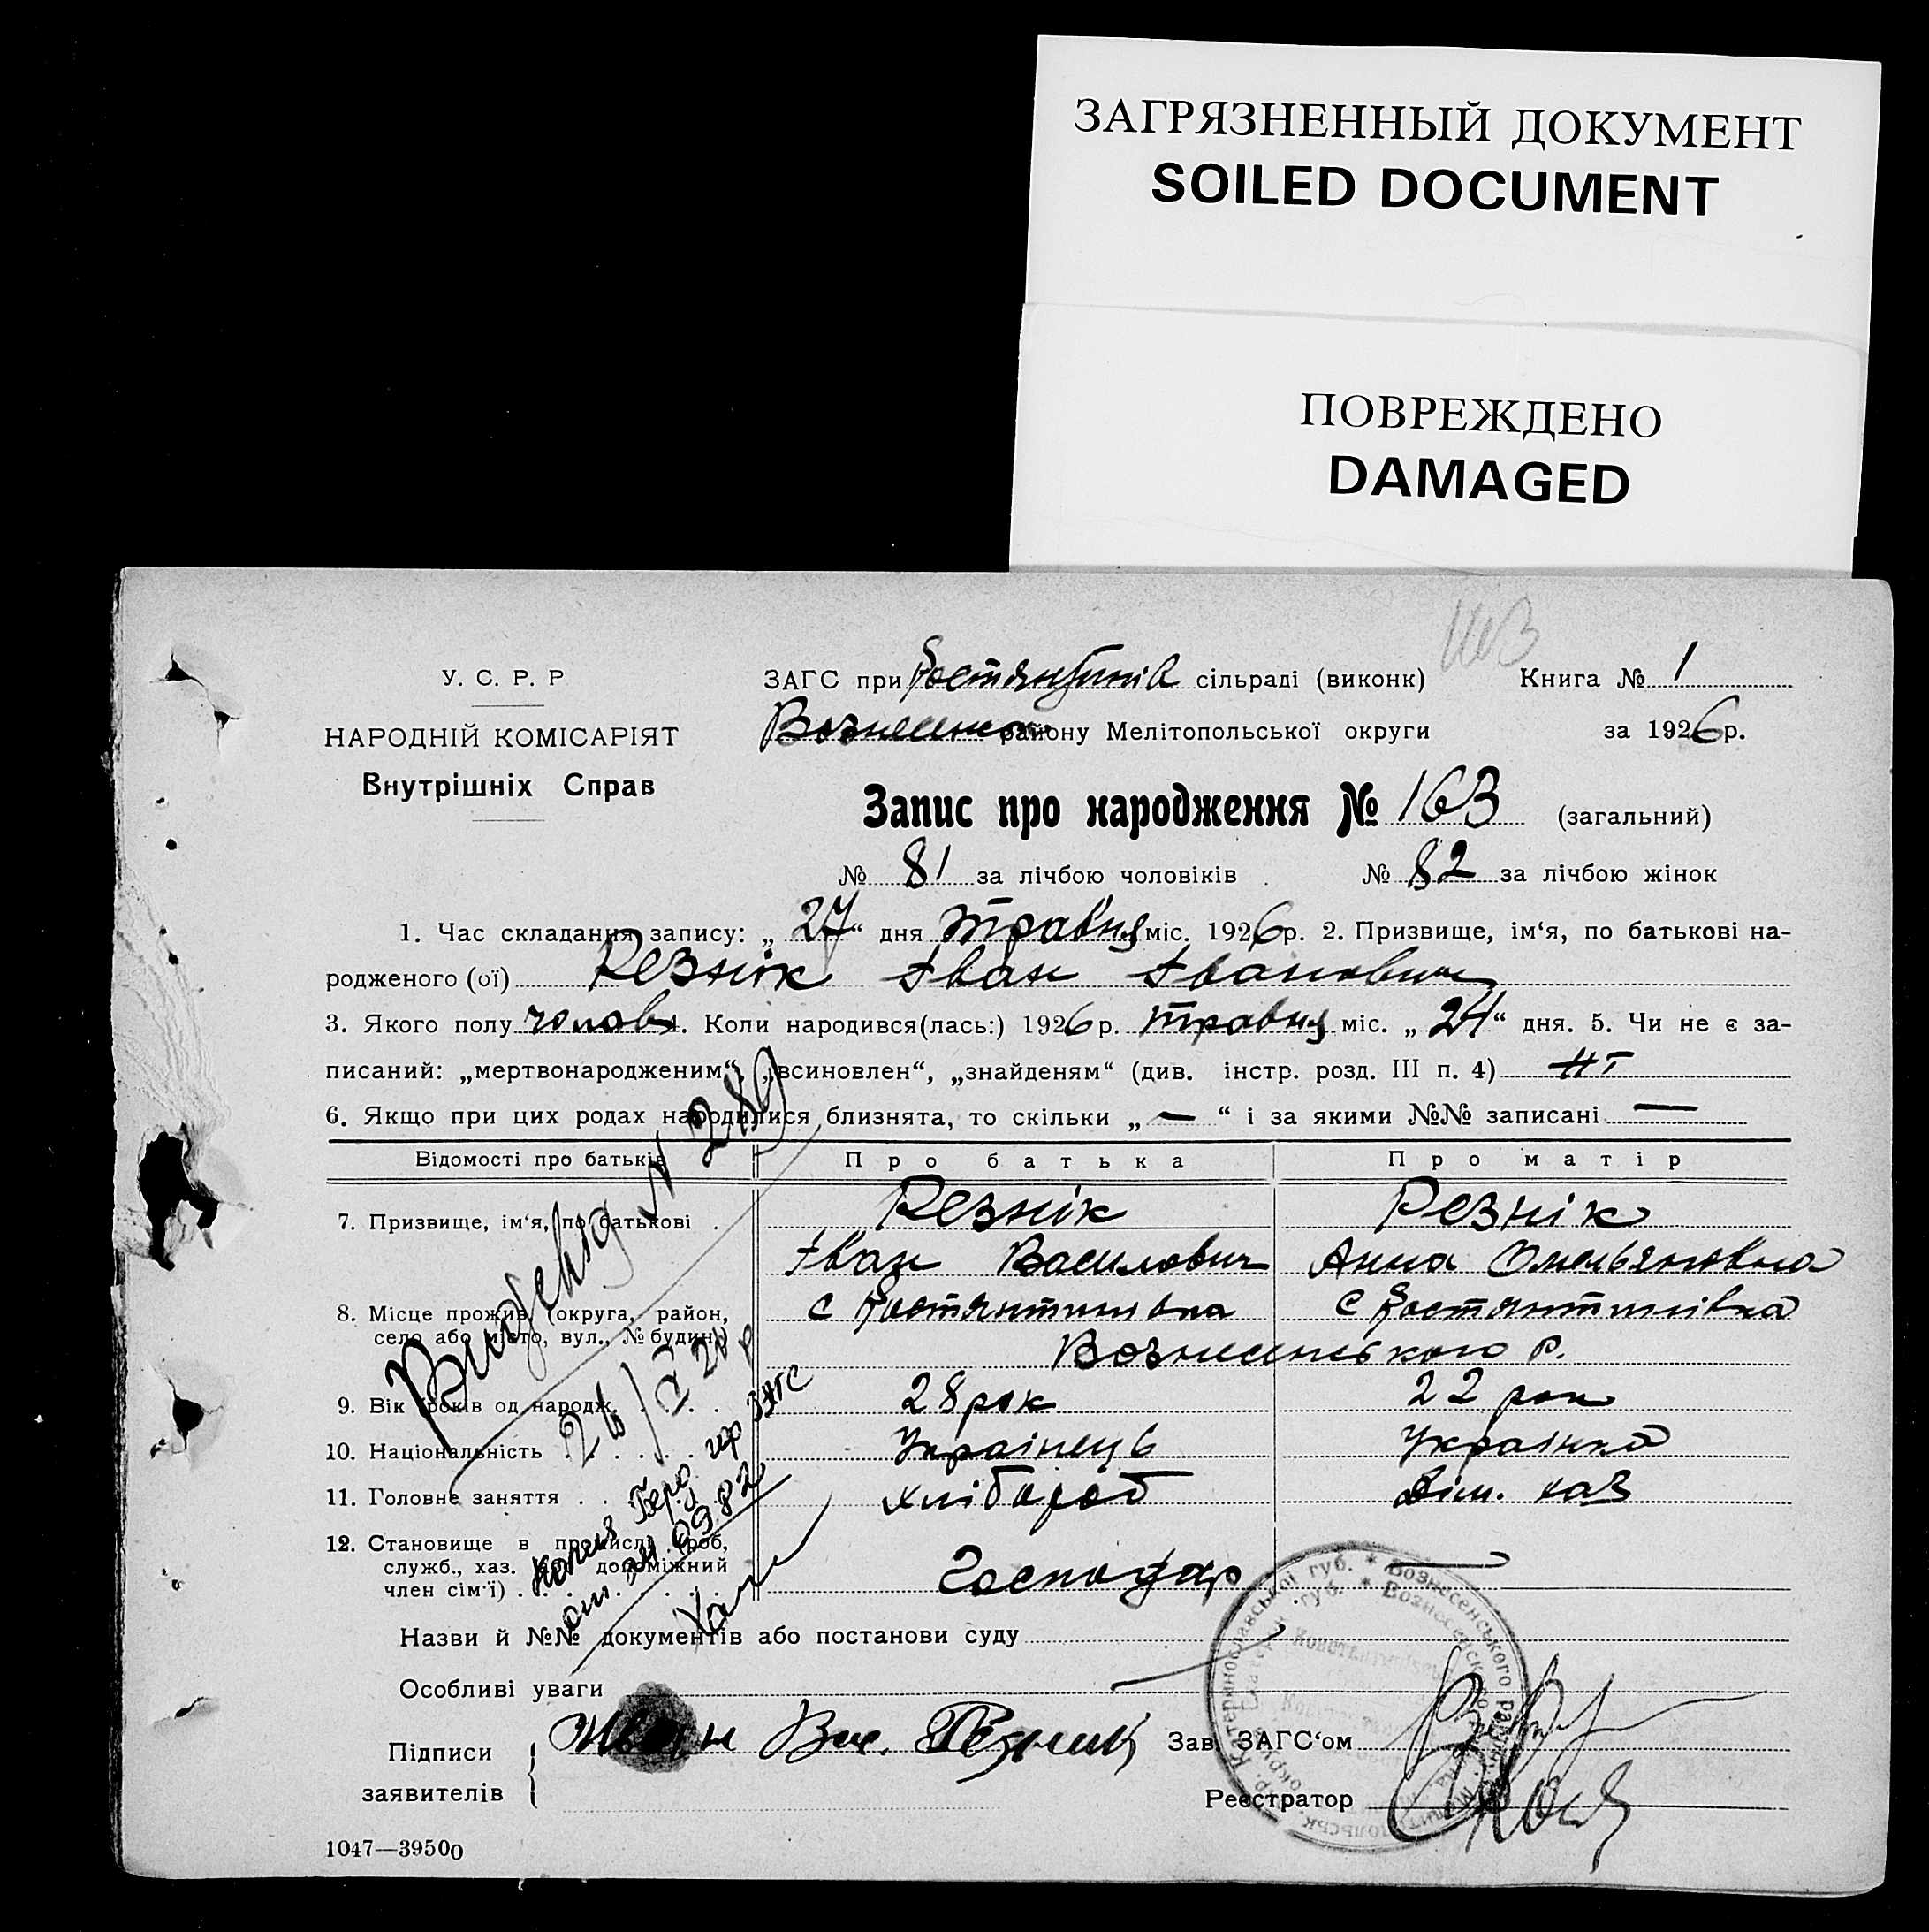 ЗАГРЯЗНЕННЫЙ ДОКУМЕНТ
SOILED DOCUMENT
ПОВРЕЖДЕНО
DAMAGED
У. С. Р. Р
НАРОДНІЙ КОМІСАРІЯТ
Внутрішніх Справ
ЗАГС при сільраді (виконк) Книга № 1
району Мелітопольської округи за 1926 р.
Запис про народження № 163 (загальний)
№ 81 за лічбою чоловіків № 82 за лічбою жінок
1. Час складання запису: „ 27 “ дня травня міс. 1926 р. 2. Призвище, ім‘я, по батькові на-
родженого (ої) Резнік Іван Іванович
3. Якого полу чолов 4. Коли народився(лась:) 1926 р. травня міс. „ 24 “ дня. 5. Чи не є за-
писаний: „мертвонародженим“, „всиновлен“, „знайденям“ (див. інстр. розд. III п. 4)
6. Якщо при цих родах народилися близнята, то скільки „ — “ і за якими №№ записані —
Відомості про батьків Про батька Про матір
7. Призвище, ім‘я, по батькові . Резнік Резнік
Іван Василович Анна Омельяновна
8. Місце прожив. (округа, район, с Костянтинівка с Костянтинівка
село або місто, вул., № будин.
Вознесенського р.
9. Вік (років од народж. 28 рок 22 рок
10. Національність Українець Українка
11. Головне заняття хлібороб
12. Становище в промислі (роб,
служб., хаз. або допоміжний
член сім‘ї) Господар —
Назви й №№ документів або постанови суду
Особливі уваги
Підписи
заявителів
Иван Вас. Резник
Зав. ЗАГС‘ом
Реєстратор
1047—39500
N 289
копия